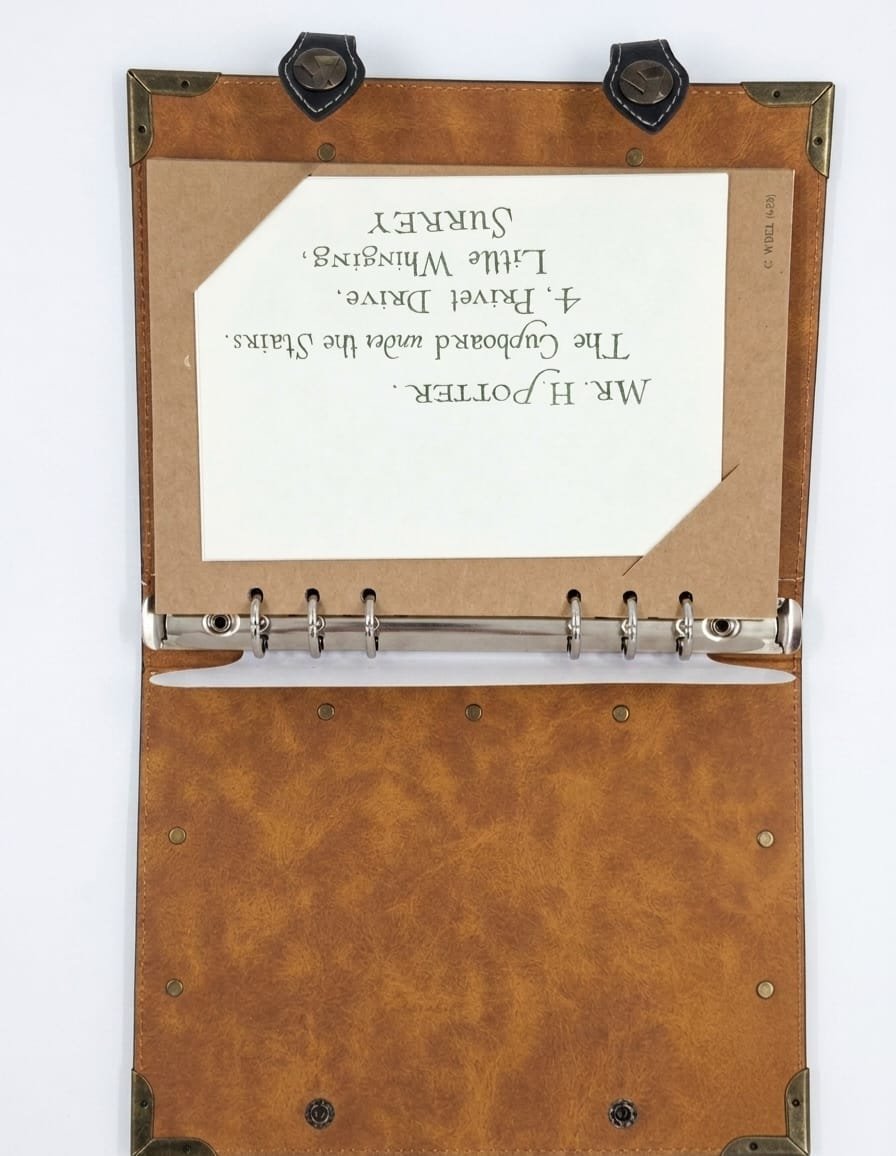 Mr. H. Potter.
The Cupboard under the Stairs.
4, Privet Drive,
Little Whinging,
SURREY